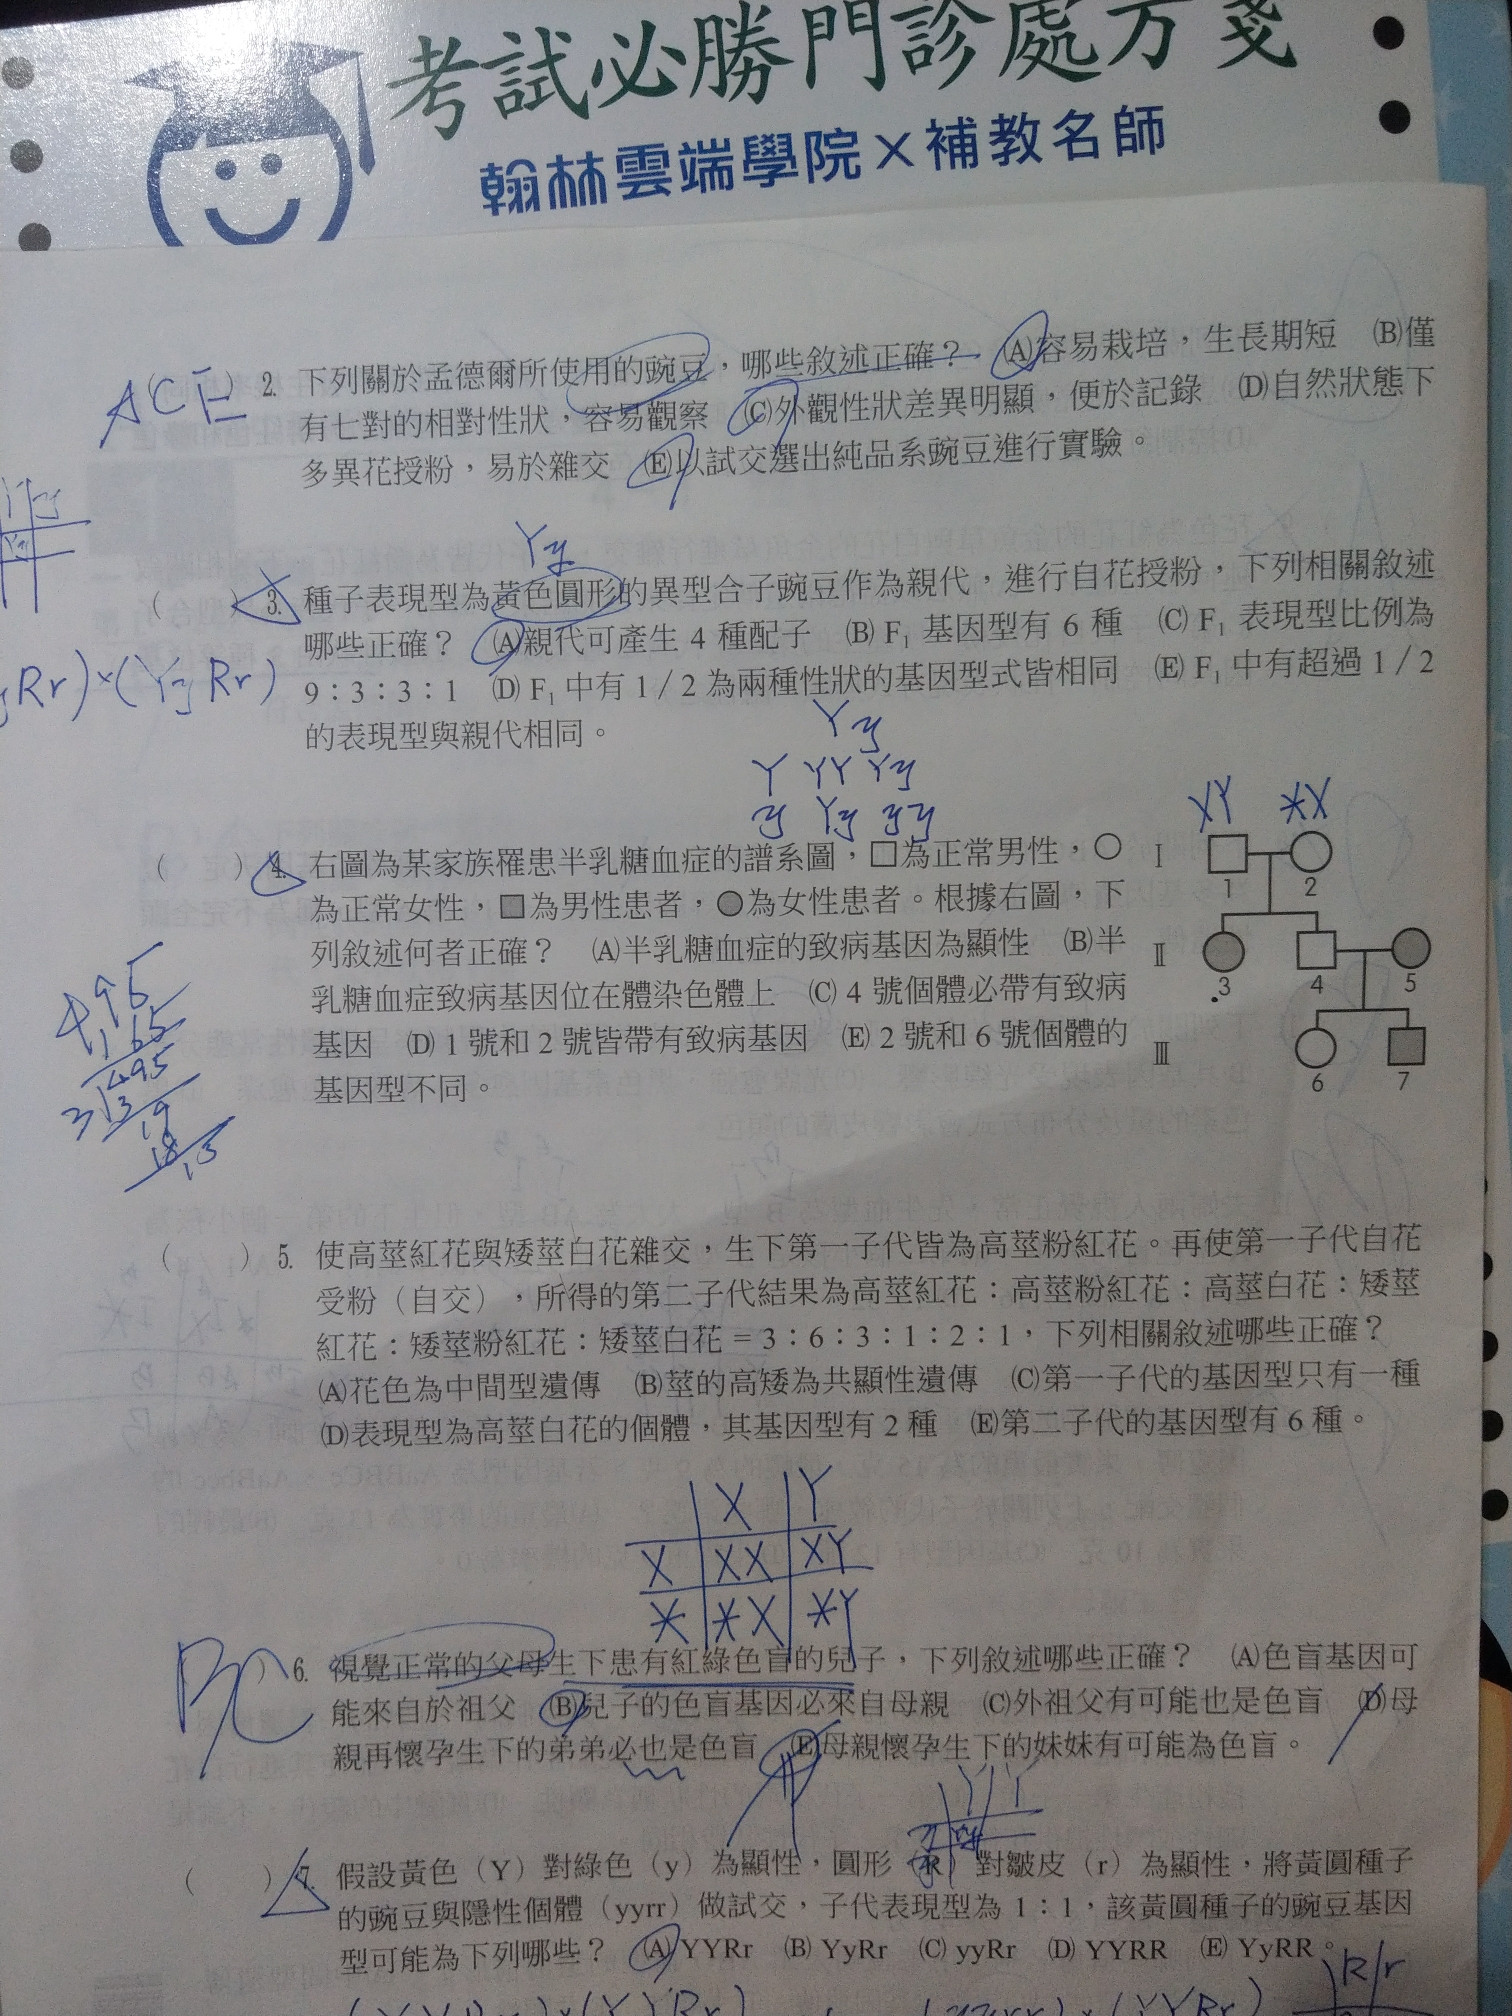 考試必勝門診處方箋
翰林雲端學院×補教名師
ACE
2. 下列關於孟德爾所使用的豌豆，哪些敘述正確？ (A)容易栽培，生長期短 (B)僅
有七對的相對性狀，容易觀察 (C)外觀性狀差異明顯，便於記錄 (D)自然狀態下
多異花授粉，易於雜交 (E)以試交選出純品系豌豆進行實驗。
Yy
( ) 3. 種子表現型為黃色圓形的異型合子豌豆作為親代，進行自花授粉，下列相關敘述
哪些正確？ (A)親代可產生 4 種配子 (B) F₁ 基因型有 6 種 (C) F₁ 表現型比例為
Rr)×(YyRr)
9：3：3：1 (D) F₁ 中有 1／2 為兩種性狀的基因型式皆相同 (E) F₁ 中有超過 1／2
的表現型與親代相同。
Y y
Y YY Yy
y Yy yy
XY XX
( ) 4. 右圖為某家族罹患半乳糖血症的譜系圖，□為正常男性，○
為正常女性，■為男性患者，●為女性患者。根據右圖，下
列敘述何者正確？ (A)半乳糖血症的致病基因為顯性 (B)半
乳糖血症致病基因位在體染色體上 (C) 4 號個體必帶有致病
基因 (D) 1 號和 2 號皆帶有致病基因 (E) 2 號和 6 號個體的
基因型不同。
I
1 2
II
3 4 5
III
6 7
495
165
3 495
3
19
18
15
( ) 5. 使高莖紅花與矮莖白花雜交，生下第一子代皆為高莖粉紅花。再使第一子代自花
受粉（自交），所得的第二子代結果為高莖紅花：高莖粉紅花：高莖白花：矮莖
紅花：矮莖粉紅花：矮莖白花＝3：6：3：1：2：1，下列相關敘述哪些正確？
(A)花色為中間型遺傳 (B)莖的高矮為共顯性遺傳 (C)第一子代的基因型只有一種
(D)表現型為高莖白花的個體，其基因型有 2 種 (E)第二子代的基因型有 6 種。
X Y
X XX XY
X XX XY
BC
) 6. 視覺正常的父母生下患有紅綠色盲的兒子，下列敘述哪些正確？ (A)色盲基因可
能來自於祖父 (B)兒子的色盲基因必來自母親 (C)外祖父有可能也是色盲 (D)母
親再懷孕生下的弟弟必也是色盲 (E)母親懷孕生下的妹妹有可能為色盲。
( ) 7. 假設黃色（Y）對綠色（y）為顯性，圓形（R）對皺皮（r）為顯性，將黃圓種子
的豌豆與隱性個體（yyrr）做試交，子代表現型為 1：1，該黃圓種子的豌豆基因
型可能為下列哪些？ (A) YYRr (B) YyRr (C) yyRr (D) YYRR (E) YyRR。
R r